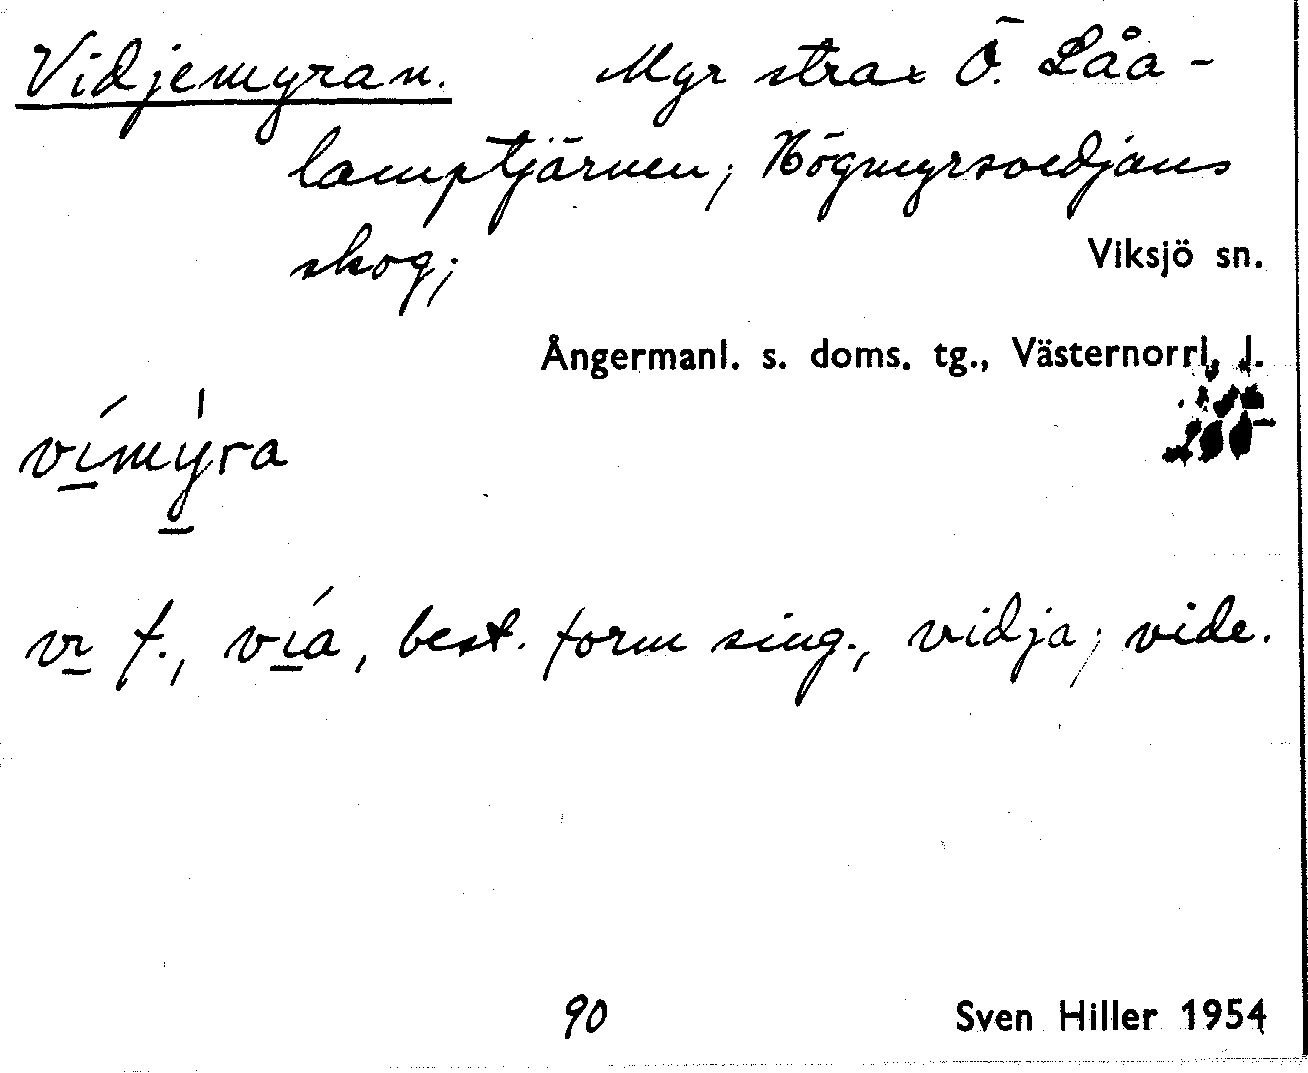 Vidjemyran. Myr strax Ö. Låa-
lamptjärnen; Högmyrsvedjans
skog; Viksjö sn.
Ångermanl. s. doms. tg., Västernorrl. l.
vímýra
vi f., vía, best. form sing., vidja; vide.
90 Sven Hiller 1954